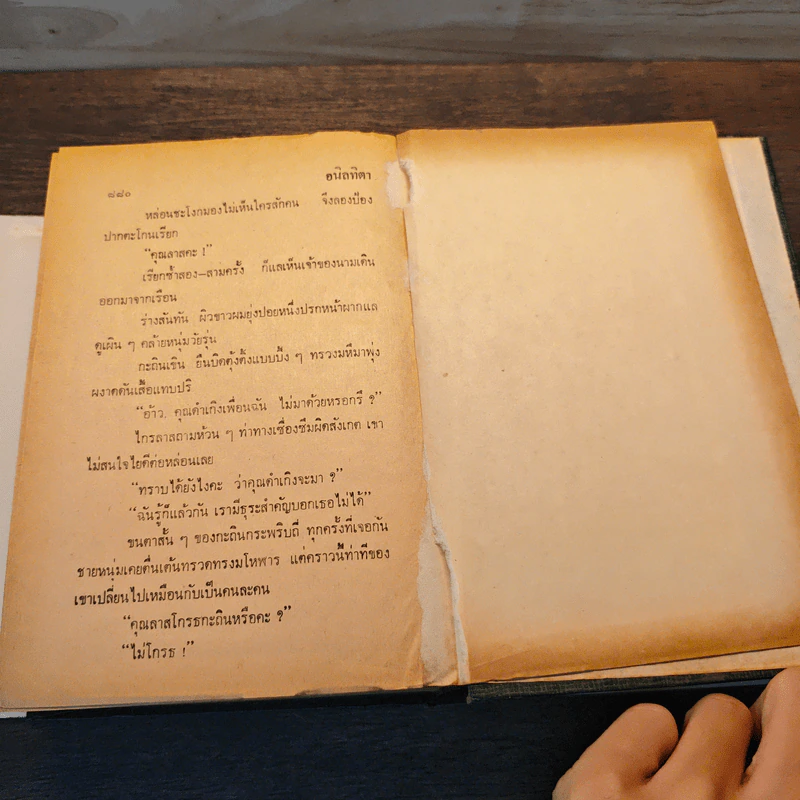 ๘๘๐
อนิลทิตา
หล่อนชะโงกมองไม่เห็นใครสักคน จึงลองป้อง
ปากตะโกนเรียก
“คุณลาสคะ !”
เรียกซ้ำสอง–สามครั้ง ก็แลเห็นเจ้าของนามเดิน
ออกมาจากเรือน
ร่างสันทัน ผิวขาวผมยุ่งปอยหนึ่งปรกหน้าผากแล
ดูเผิน ๆ คล้ายหนุ่มวัยรุ่น
กะถินเขิน ยืนบิดตุ้งติ้งแบบปึ๋ง ๆ ทรวงมหึมาพุ่ง
ผงาดดันเสื้อแทบปริ
“อ้าว, คุณดำเกิงเพื่อนฉัน ไม่มาด้วยหรอกรึ ?”
ไกรลาสถามห้วน ๆ ท่าทางเซื่องซึมผิดสังเกต เขา
ไม่สนใจไยดีต่อหล่อนเลย
“ทราบได้ยังไงคะ ว่าคุณดำเกิงจะมา ?”
“ฉันรู้ก็แล้วกัน เรามีธุระสำคัญบอกเธอไม่ได้”
ขนตาสั้น ๆ ของกะถินกระพริบถี่ ทุกครั้งที่เจอกัน
ชายหนุ่มเคยตื่นเต้นทรวดทรงมโหฬาร แต่คราวนี้ท่าทีของ
เขาเปลี่ยนไปเหมือนกับเป็นคนละคน
“คุณลาสโกรธกะถินหรือคะ ?”
“ไม่โกรธ !”